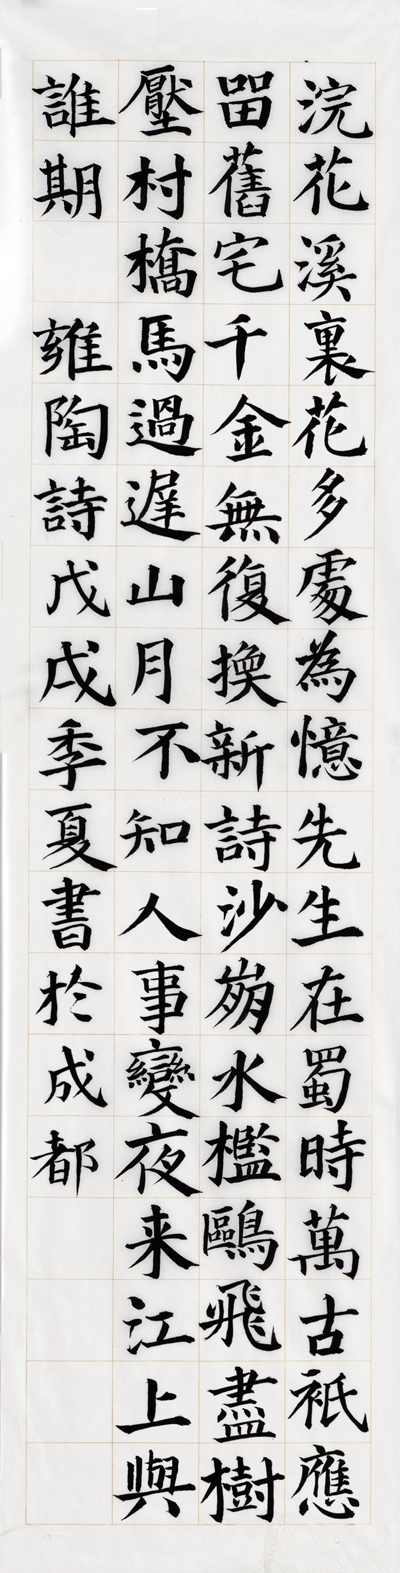 浣花溪裏花多處為憶先生在蜀時萬古祇應
留舊宅千金無復換新詩沙崩水檻鷗飛盡樹
壓村橋馬過遲山月不知人事變夜来江上與
誰期 雍陶詩戊戌季夏書於成都